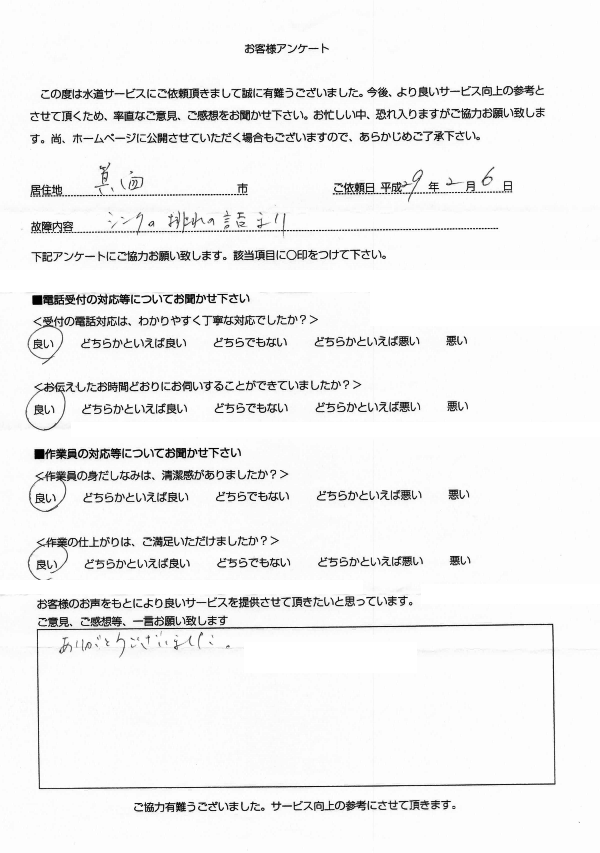 お客様アンケート
この度は水道サービスにご依頼頂きまして誠に有難うございました。今後、より良いサービス向上の参考と
させて頂くため、率直なご意見、ご感想をお聞かせ下さい。お忙しい中、恐れ入りますがご協力お願い致しま
す。尚、ホームページに公開させていただく場合もございますので、あらかじめご了承下さい。
居住地 箕面 市 ご依頼日 平成29年2月6日
故障内容 シンクの排水の詰まり
下記アンケートにご協力お願い致します。該当項目に〇印をつけて下さい。
■電話受付の対応等についてお聞かせ下さい
＜受付の電話対応は、わかりやすく丁寧な対応でしたか？＞
良い どちらかといえば良い どちらでもない どちらかといえば悪い 悪い
＜お伝えしたお時間どおりにお伺いすることができていましたか？＞
良い どちらかといえば良い どちらでもない どちらかといえば悪い 悪い
■作業員の対応等についてお聞かせ下さい
＜作業員の身だしなみは、清潔感がありましたか？＞
良い どちらかといえば良い どちらでもない どちらかといえば悪い 悪い
＜作業の仕上がりは、ご満足いただけましたか？＞
良い どちらかといえば良い どちらでもない どちらかといえば悪い 悪い
お客様のお声をもとにより良いサービスを提供させて頂きたいと思っています。
ご意見、ご感想等、一言お願い致します
ありがとうございました。
ご協力有難うございました。サービス向上の参考にさせて頂きます。